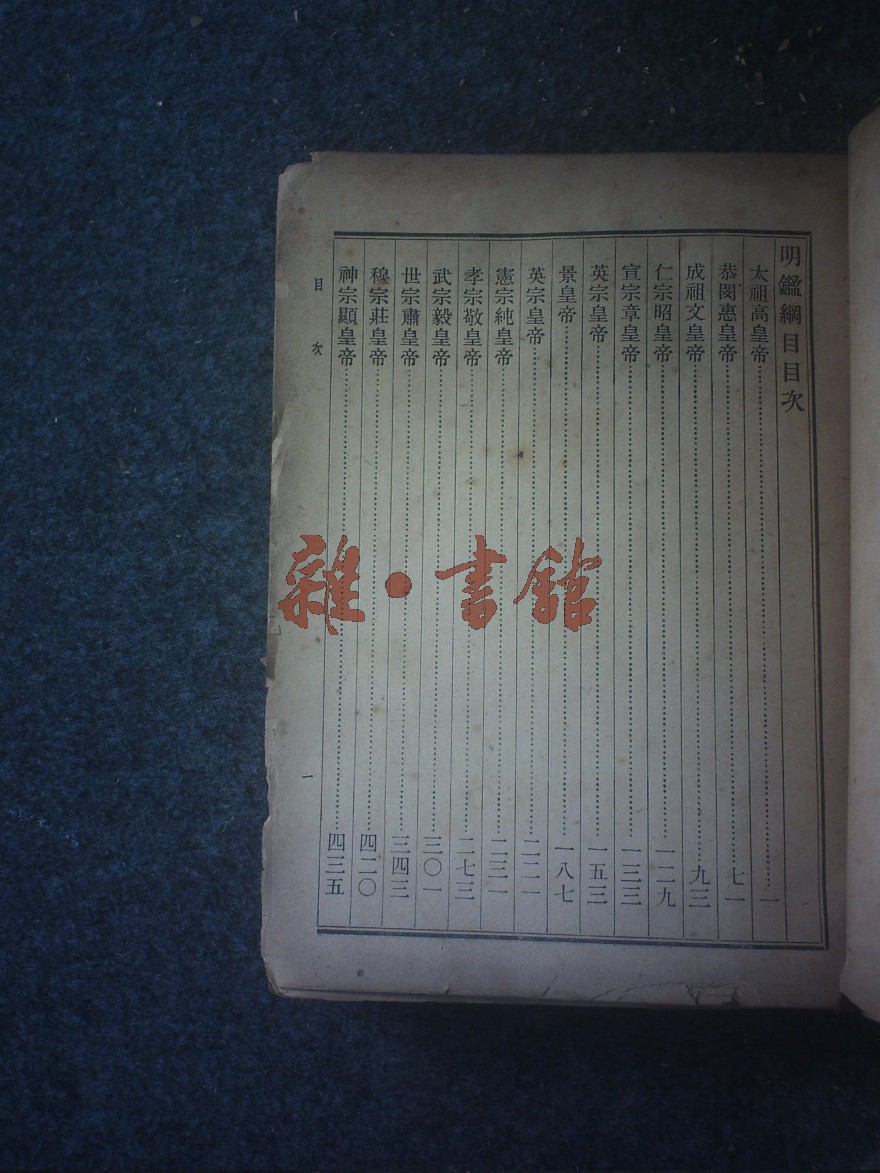 明鑑綱目目次
太祖高皇帝⋯⋯一
恭閔惠皇帝⋯⋯七一
成祖文皇帝⋯⋯九三
仁宗昭皇帝⋯⋯一二九
宣宗章皇帝⋯⋯一三三
英宗皇帝⋯⋯一五三
景皇帝⋯⋯一八七
英宗皇帝⋯⋯二一一
憲宗純皇帝⋯⋯二三一
孝宗敬皇帝⋯⋯二七三
武宗毅皇帝⋯⋯三〇一
世宗肅皇帝⋯⋯三四三
穆宗莊皇帝⋯⋯四二〇
神宗顯皇帝⋯⋯四三五
目次
一
雜·書館